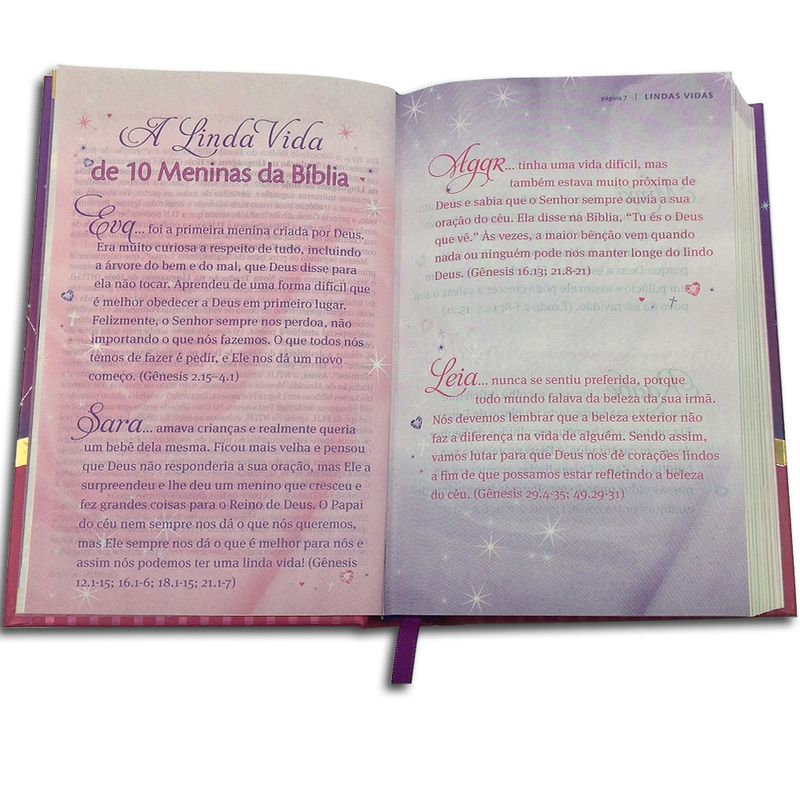 A Linda Vida
de 10 Meninas da Bíblia
Eva... foi a primeira menina criada por Deus.
Era muito curiosa a respeito de tudo, incluindo
a árvore do bem e do mal, que Deus disse para
ela não tocar. Aprendeu de uma forma difícil que
é melhor obedecer a Deus em primeiro lugar.
Felizmente, o Senhor sempre nos perdoa, não
importando o que nós fazemos. O que todos nós
temos de fazer é pedir, e Ele nos dá um novo
começo. (Gênesis 2.15–4.1)
Sara... amava crianças e realmente queria
um bebê dela mesma. Ficou mais velha e pensou
que Deus não responderia a sua oração, mas Ele a
surpreendeu e lhe deu um menino que cresceu e
fez grandes coisas para o Reino de Deus. O Papai
do céu nem sempre nos dá o que nós queremos,
mas Ele sempre nos dá o que é melhor para nós e
assim nós podemos ter uma linda vida! (Gênesis
12.1-15; 16.1-6; 18.1-15; 21.1-7)
página 7 | LINDAS VIDAS
Agar... tinha uma vida difícil, mas
também estava muito próxima de
Deus e sabia que o Senhor sempre ouvia a sua
oração do céu. Ela disse na Bíblia, “Tu és o Deus
que vê.” Às vezes, a maior bênção vem quando
nada ou ninguém pode nos manter longe do lindo
Deus. (Gênesis 16.13; 21.8-21)
Leia... nunca se sentiu preferida, porque
todo mundo falava da beleza da sua irmã.
Nós devemos lembrar que a beleza exterior não
faz a diferença na vida de alguém. Sendo assim,
vamos lutar para que Deus nos dê corações lindos
a fim de que possamos estar refletindo a beleza
do céu. (Gênesis 29.4-35; 49.29-31)